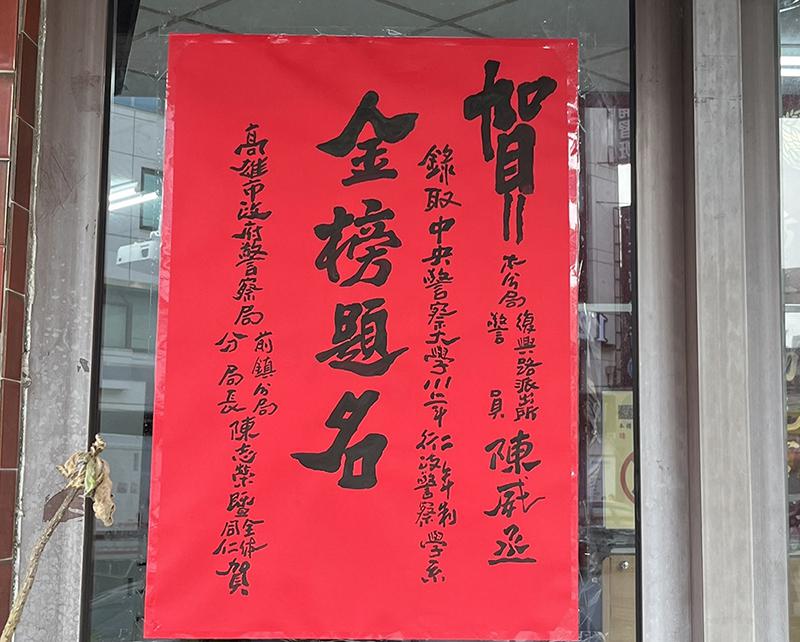 賀
本分局
復興路派出所
警員
陳威丞
錄取中央警察大學
年
二年制
行政警察學系
金榜題名
高雄市政府警察局
前鎮分局
分局長
陳志榮暨
全体
同仁
賀